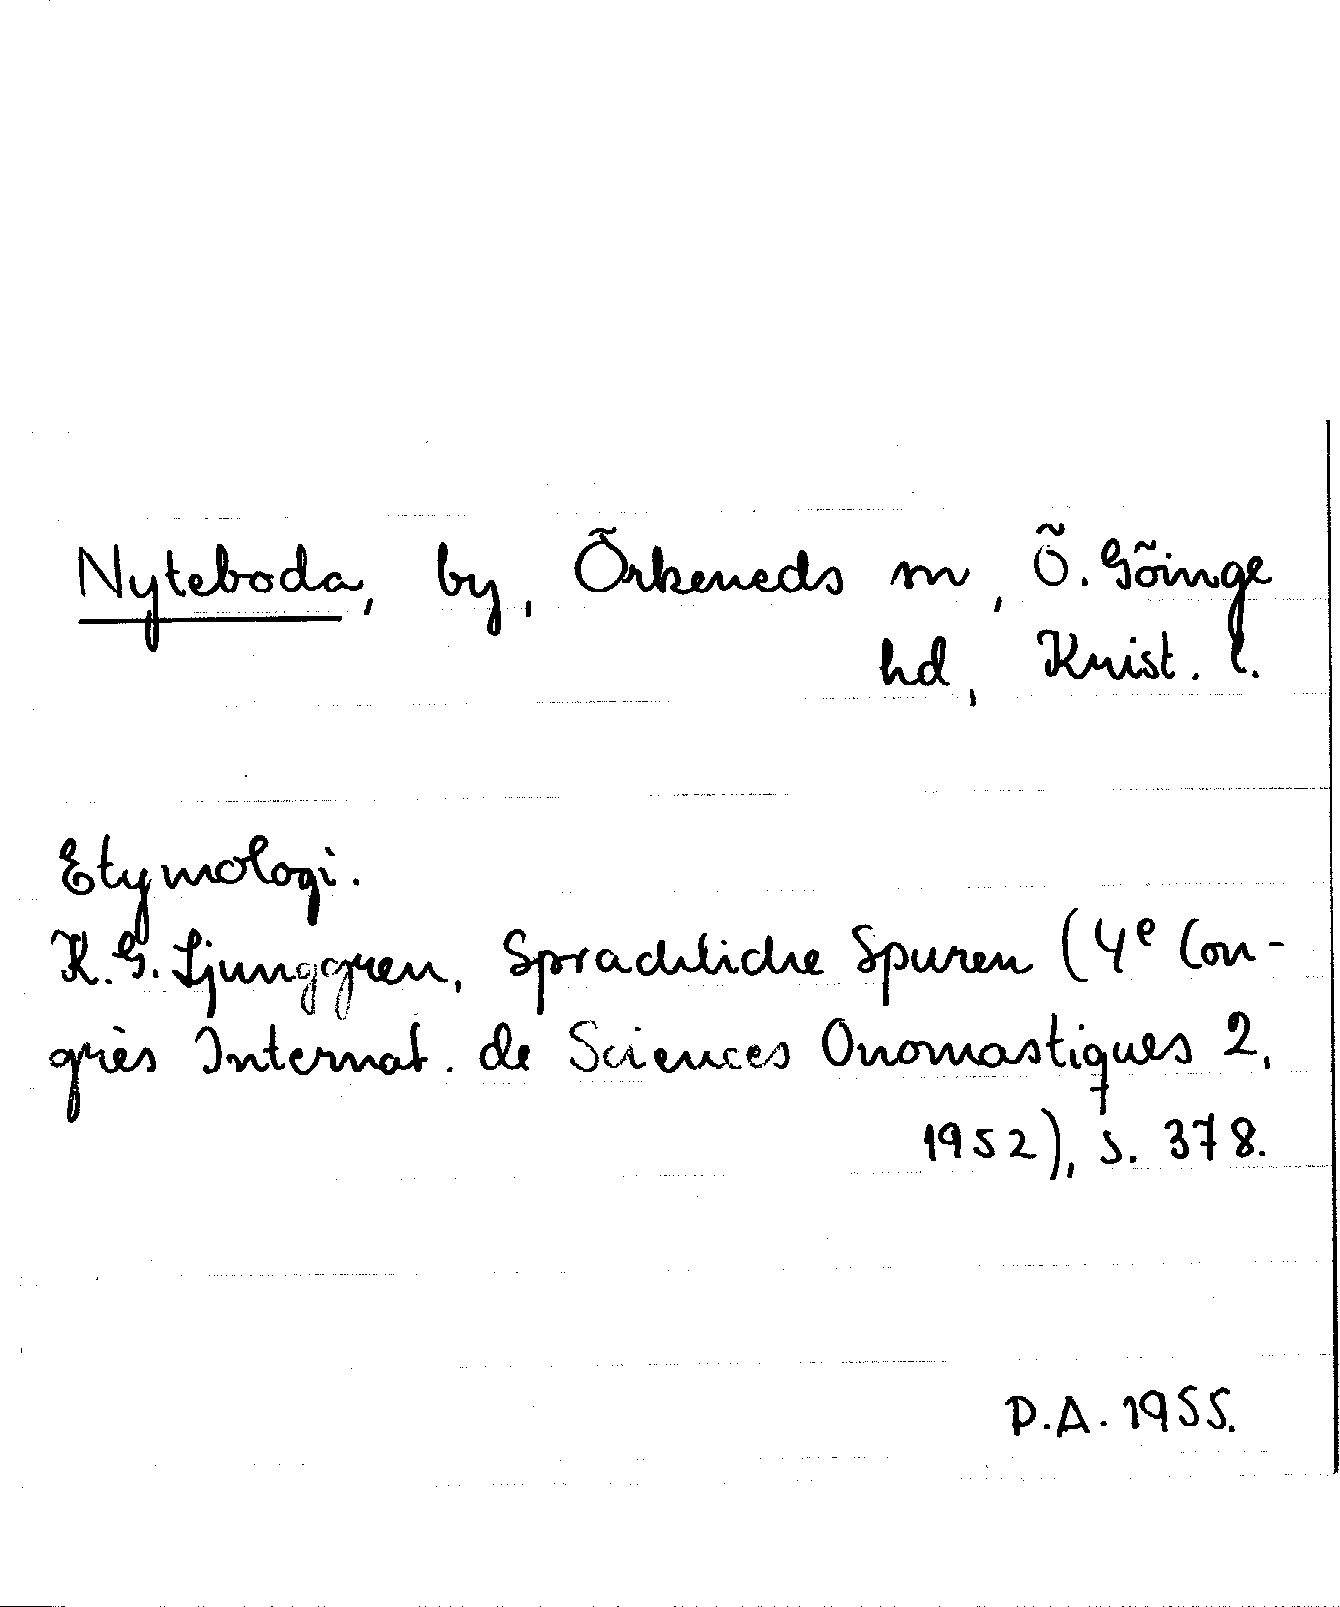 Nyteboda, by, Örkeneds sn, Ö. Göinge
hd, Krist. l.
Etymologi.
K.G. Ljunggren, Sprachliche Spuren (4e Con-
grès Internat. de Sciences Onomastiques 2,
1952), s. 378.
P.A. 1955.